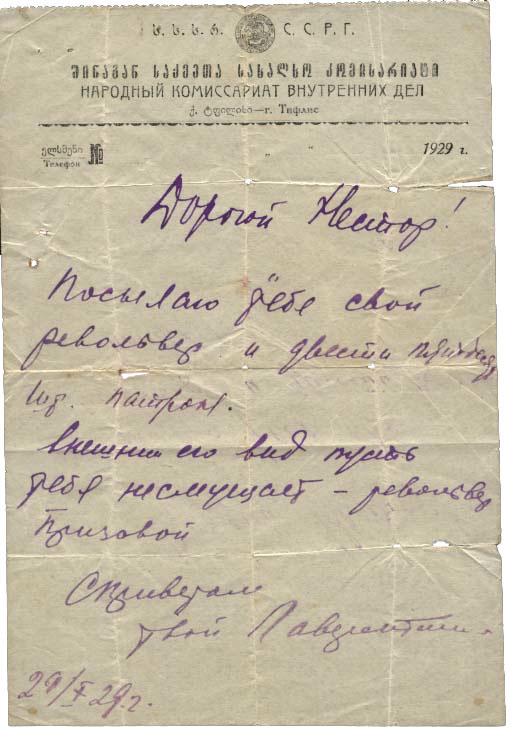 ს. ს. ს. რ. С. С. Р. Г.
შინაგან საქმეთა სახალხო კომისარიატი
НАРОДНЫЙ КОМИССАРИАТ ВНУТРЕННИХ ДЕЛ
ქ. ტფილისი—г. Тифлис
ტელეფონი
Телефон №
„ „ 1929 г.
Дорогой Нестор!
Посылаю тебе свой
револьвер и двести пятьдесят
шт. патрон.
Внешний его вид пусть
тебя несмущает – револьвер
призовой
С приветом
твой Лаврентий.
29/X 29 г.